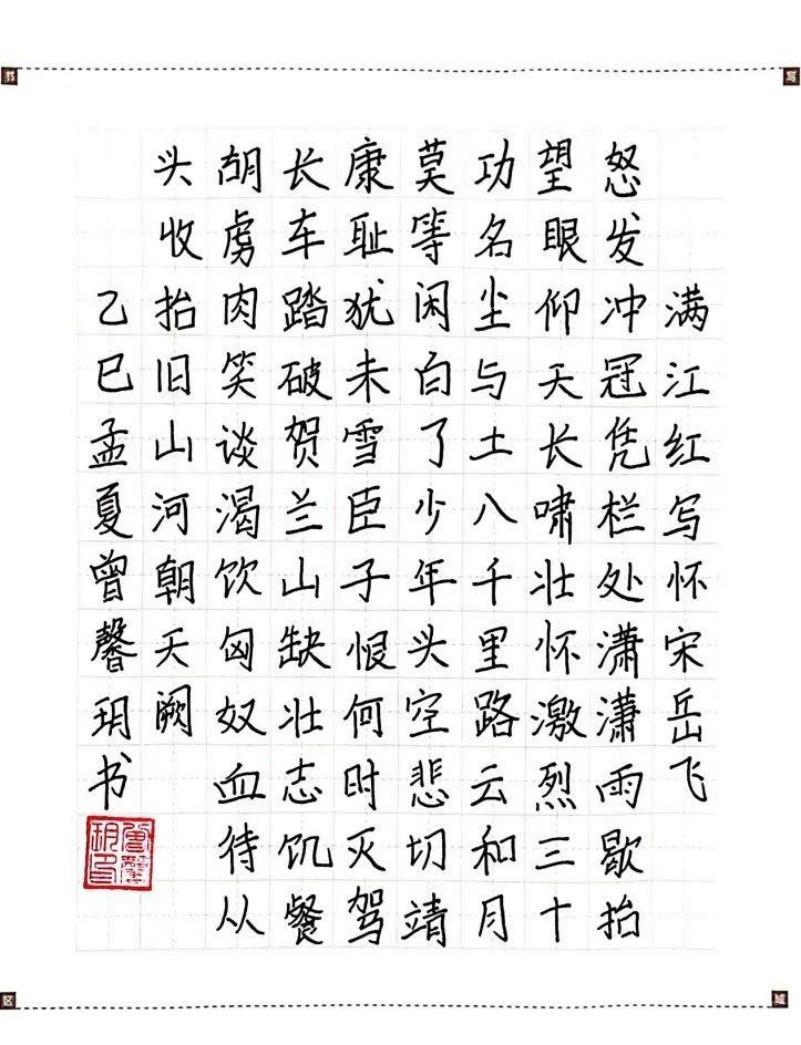 书写
满江红写怀宋岳飞
怒发冲冠凭栏处潇潇雨歇抬
望眼仰天长啸壮怀激烈三十
功名尘与土八千里路云和月
莫等闲白了少年头空悲切靖
康耻犹未雪臣子恨何时灭驾
长车踏破贺兰山缺壮志饥餐
胡虏肉笑谈渴饮匈奴血待从
头收抬旧山河朝天阙
乙巳孟夏曾馨玥书
曾馨玥印
区域